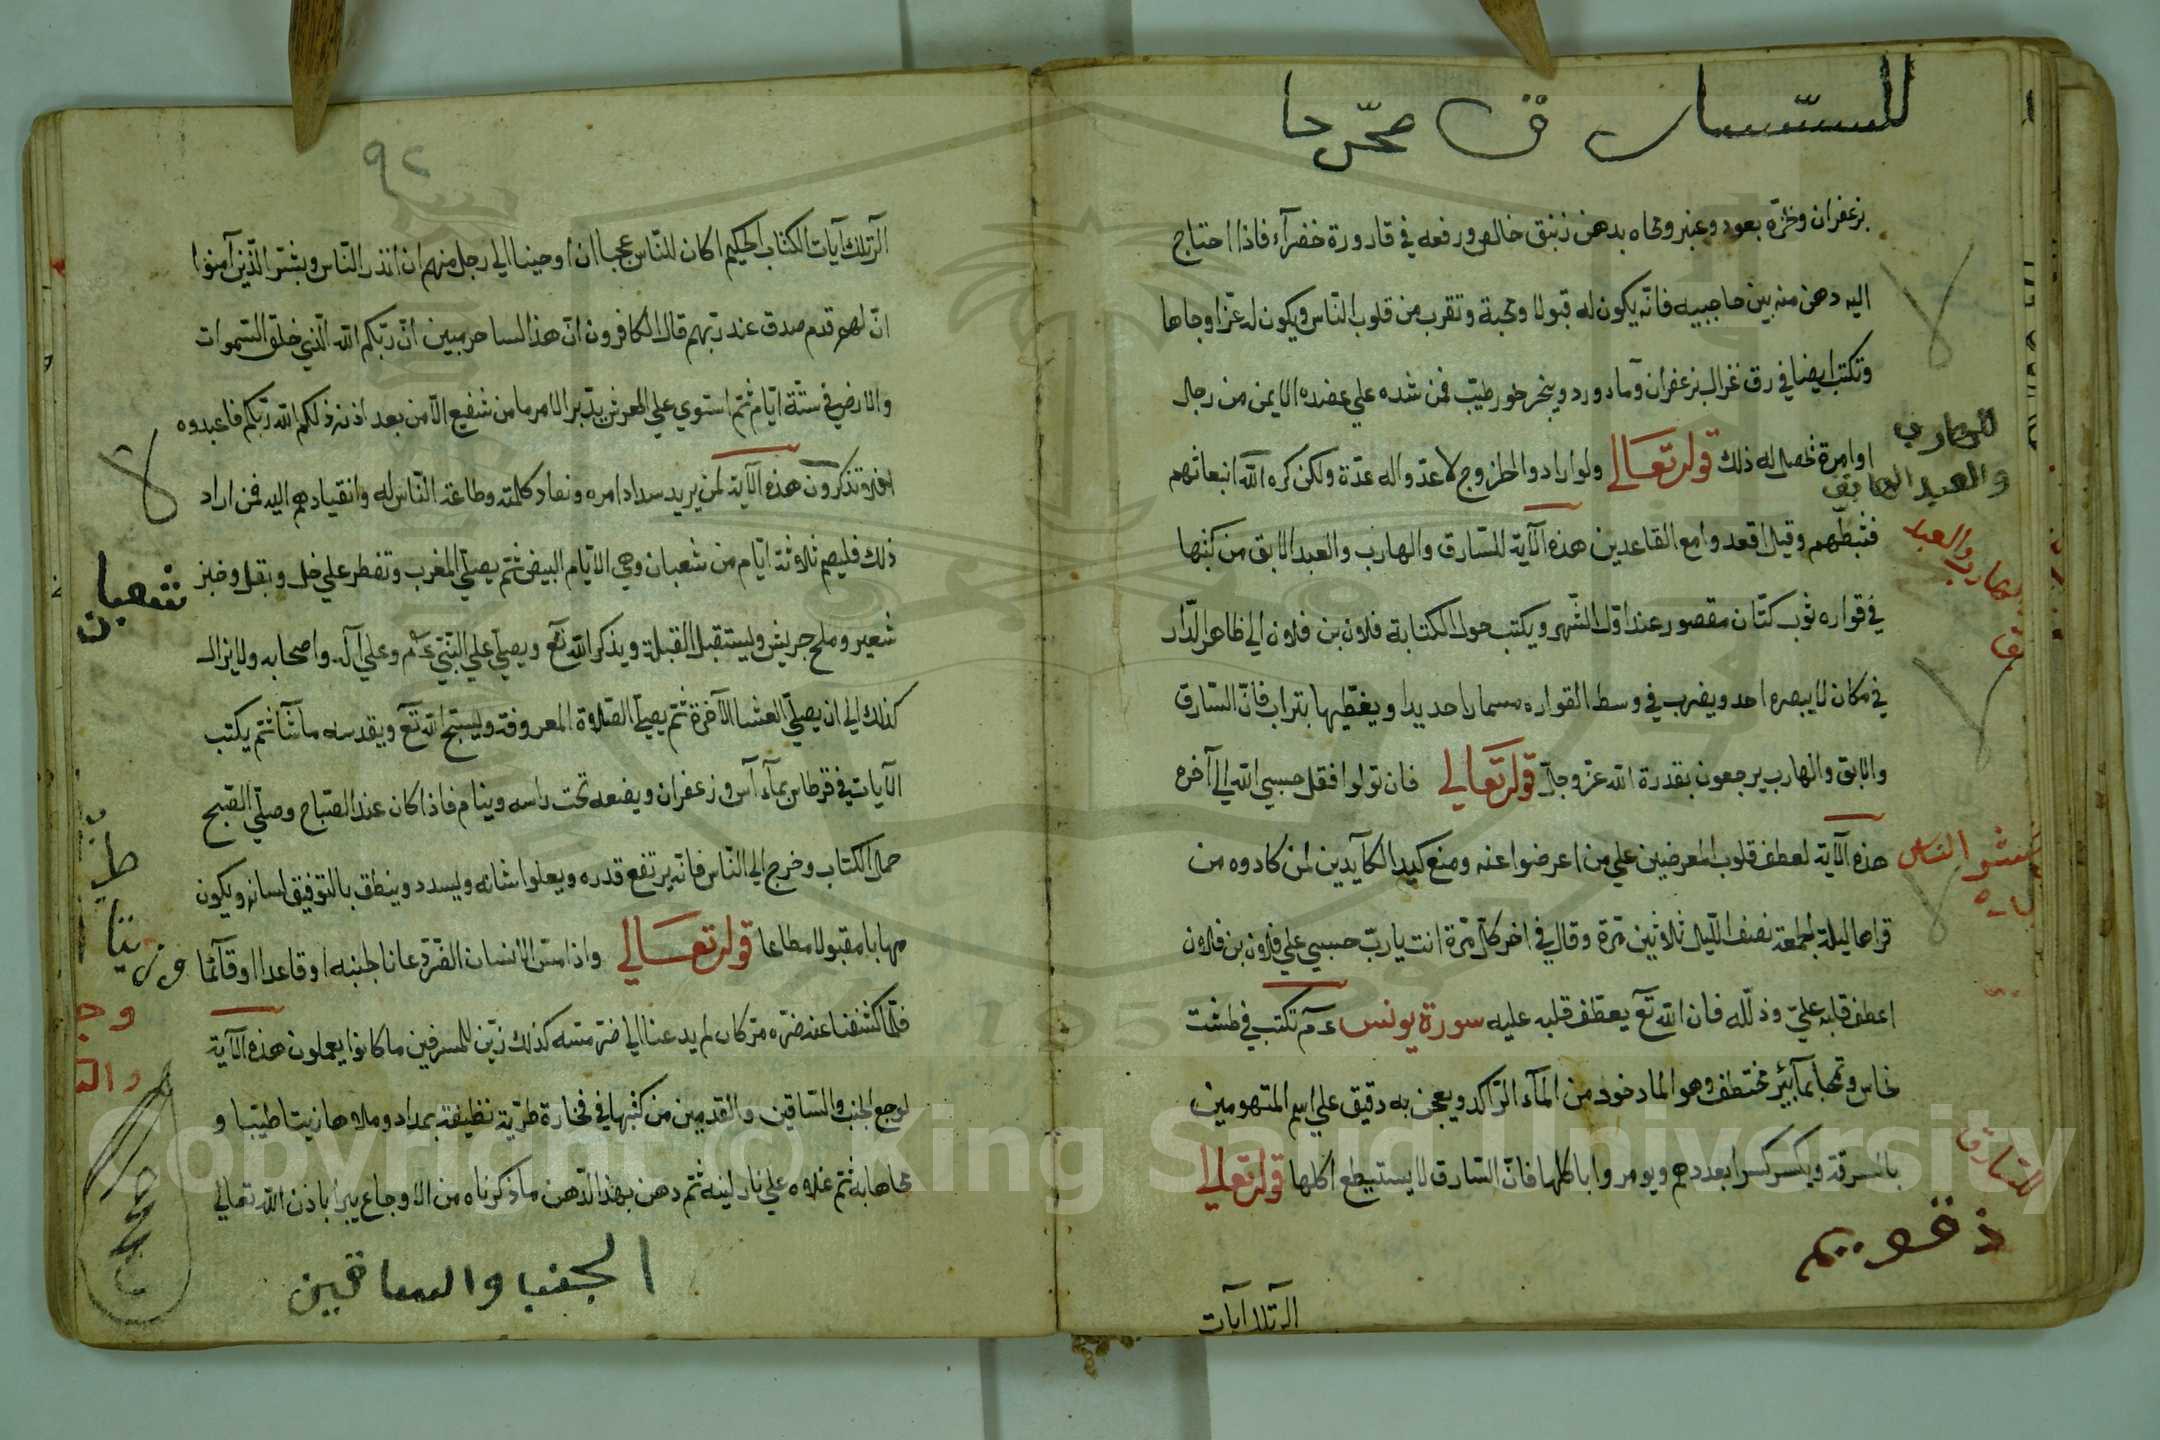 للسارق مجرحا
بزعفران وبخره بعود وعنبر ومحاه بدهن زنبق خالص ورفعه في قارورة خضرآء فاذا احتاج
اليه دهن منه بين حاجبيه فانّه يكون له قبولا ومحبة وتقرب من قلوب النّاس ويكون له عزّا وجاها
وتكتب ايضا في رق غزال بزعفران وما ورد ويبخر بخور طيّب فمن شده علي عضده الايمن من رجل
او امرة تحصل له ذلك قوله تعالي ولو ارادوا الخروج لاعدّوا له عدّة ولكن كره الله انبعاثهم
فثبطّهم وقيل اقعدوا مع القاعدين هذه الآية للسّارق والهارب والعبد الابق من كتبها
في قواره ثوب كتّان مقصور عند اوّل الشّهر ويكتب حول الكتابة فلان بن فلان الي ظاهر الدّار
في مكان لا يبصره احد ويضرب في وسط القواره مسمارا حديدا ويغطّيها بتراب فانّ السّارق
والابق والهارب يرجعون بقدرة الله عزّ وجلّ قوله تعالي فان تولوا فقل حسبي الله الي آخره
هذه الآية لعطف قلوب المعرضين علي من اعرضوا عنه ومنع كيد الكآيدين لمن كادوه من
قراها ليلة الجمعة نصف اللّيل ثلاثين مرّة وقال في اخر كلّ مرّة انت يا ربّ حسبي علي فلان بن فلان
اعطف قلبه عليّ وذلّله فان الله تع يعطف قلبه عليه سورة يونس عم تكتب في طشت
نحاس وتمحا بمآ بئر مختطف وهو الماخوذ من المآء الرّاكد ويعجن به دقيق علي اسم المتهومين
بالسرقة ويكسر كسرا بعددهم ويومروا باكلها فانّ السّارق لا يستطيع اكلها قوله تعالي
الر تلك ايات
للهارب
والعبد الابق
والعبد
الناس
للسّارق
٩٢
الر تلك آيات الكتاب الحكيم اكان للنّاس عجبا ان اوحينا الي رجل منهم ان انذر النّاس وبشّر الّذين آمنوا
انّ لهم قدم صدق عند ربّهم قال الكافرون انّ هذا لساحر مبين انّ ربّكم الله الّذي خلق السّموات
والارض في ستّة ايّام ثمّ استوي علي العرش يدبّر الامر ما من شفيع الّا من بعد اذنه ذلكم الله ربّكم فاعبدوه
افلا تذكّرون هذه الآية لمن يريد سداد امره ونفاد كلمته وطاعة النّاس له وانقيادهم اليه فمن اراد
ذلك فليصم ثلاثة ايّام من شعبان وهي الايّام البيض ثمّ يصلّي المغرب وتفطر علي خل وبقل وخبز
شعير وملح جريش وليستقبل القبلة ويذكر الله تع ويصلّي علي النّبيّ عم وعلي آله واصحابه ولا يزال
كذلك الي ان يصلّي العشا الآخرة ثمّ يصلّي الصّلاة المعروفة وليسبّح الله تع ويقدسه ما شآ ثمّ يكتب
الآيات في قرطاس بمآء آس وزعفران ويضعه تحت راسه وينام فاذا كان عند الصّباح وصلّي الصّبح
حمل الكتاب وخرج الي النّاس فانّه يرتفع قدره ويعلوا شانه ويسدد وينطق بالتوفيق لسانه ويكون
مهابا مقبولا مطاعا قوله تعالي واذا مسّ الانسان الضّرّ دعانا لجنبه او قاعدا او قآئما
فلمّا كشفنا عنه ضرّه مرّ كان لم يدعنا الي ضرّ مسّه كذلك زيّن للمسرفين ما كانوا يعملون هذه الآية
لوجع الجنب والسّاقين والقدمين من كتبها في فخارة طريّة نظيفة بمداد وملاها زيتا طيّبا و
محاها به ثمّ غلاه علي نار لينه ثمّ دهن بهذا الدّهن ما ذكرناه من الاوجاع يبرا باذن الله تعالي
شعبان
الجنب والساقين
Copyright © King Saud University
1957